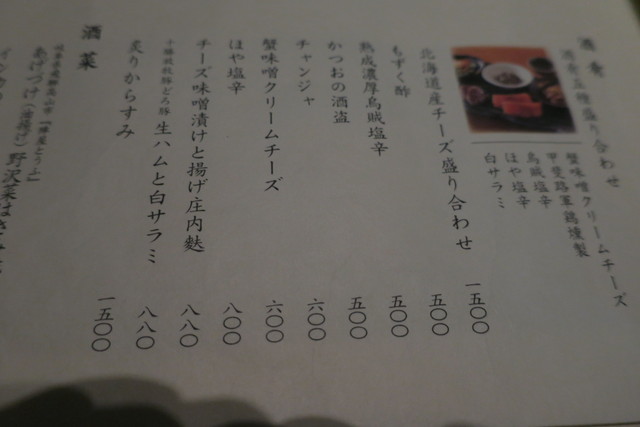 酒肴
酒肴五種盛り合わせ
蟹味噌クリームチーズ
甲斐路軍鶏燻製
烏賊塩辛
ほや塩辛
白サラミ
北海道産チーズ盛り合わせ 一五〇〇
もずく酢 五〇〇
熟成濃厚烏賊塩辛 五〇〇
かつおの酒盗 五〇〇
チャンジャ 六〇〇
蟹味噌クリームチーズ 六〇〇
ほや塩辛 八〇〇
チーズ味噌漬けと揚げ庄内麩 八八〇
十勝放牧豚どろ豚 生ハムと白サラミ 八八〇
炙りからすみ 一五〇〇
酒菜
岐阜県飛騨高山市
あげづけ（油揚げ）野沢菜